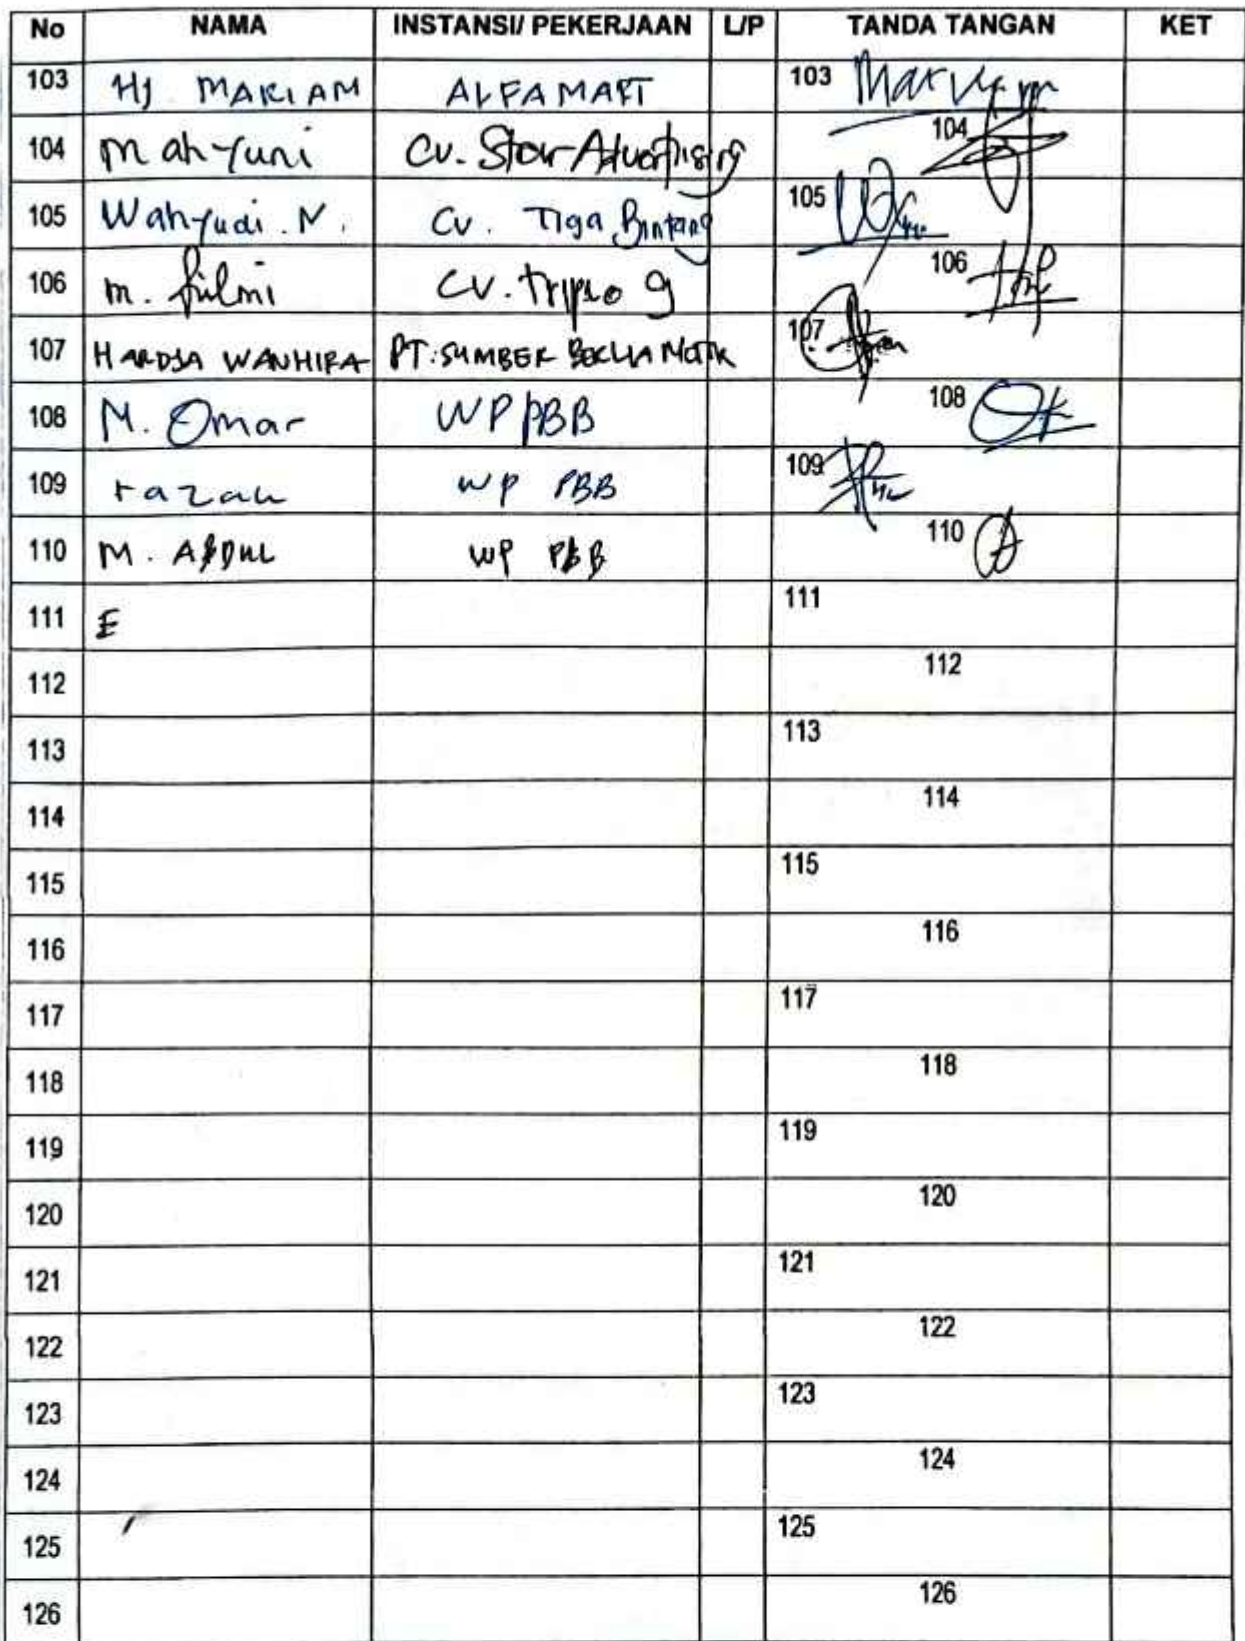 No NAMA INSTANSI/ PEKERJAAN L/P TANDA TANGAN KET
103 HJ MARIAM ALFAMART 103 Maryam
104 Mahyuni CV. Star Advertising 104
105 Wahyudi . N . CV. Tiga Bintang 105
106 M. filmi CV. 106
107 HARDJA WANHIRA PT. SUMBER 107
108 M. Omar WP PBB 108
109 razan WP PBB 109
110 M. ABDUL WP PBB 110
111 E 111
112 112
113 113
114 114
115 115
116 116
117 117
118 118
119 119
120 120
121 121
122 122
123 123
124 124
125 125
126 126